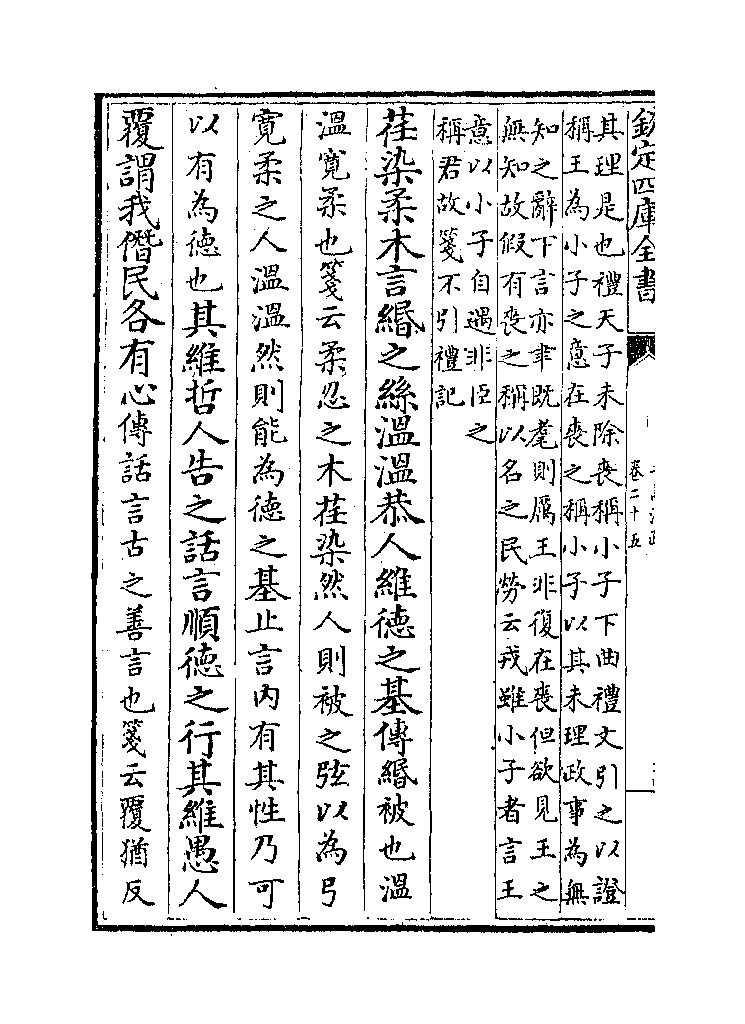 欽定四庫全書
卷二十五
其理是也禮天子未除喪稱小子下曲禮文引之以證
稱王為小子之意在喪之稱小子以其未理政事為無
知之辭下言亦聿既耄則厲王非復在喪但欲見王之
無知故假有喪之稱以名之民勞云戎雖小子者言王
意以小子自遇非臣之
稱君故箋不引禮記
荏染柔木言緡之絲溫溫恭人維德之基傳緡被也溫
溫寛柔也箋云柔忍之木荏染然人則被之弦以為弓
寛柔之人溫溫然則能為德之基止言内有其性乃可
以有為德也其維哲人告之話言順德之行其維愚人
覆謂我僭民各有心傳話言古之善言也箋云覆猶反